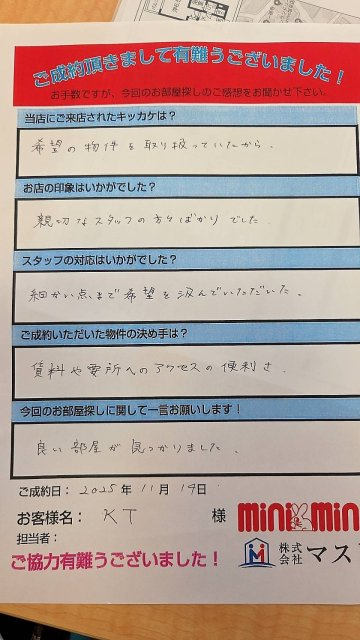 ご成約頂きまして有難うございました！
お手数ですが、今回のお部屋探しのご感想をお聞かせ下さい。
当店にご来店されたキッカケは？
希望の物件を取り扱っていたから。
お店の印象はいかがでした？
親切なスタッフの方々ばかりでした。
スタッフの対応はいかがでした？
細かい点まで希望を汲んでいただいた。
ご成約いただいた物件の決め手は？
賃料や要所へのアクセスの便利さ。
今回のお部屋探しに関して一言お願いします！
良い部屋が見つかりました。
ご成約日： 2025年 11月 19日
お客様名： KT 様
mini min
担当者：
株式会社 マス
ご協力有難うございました！